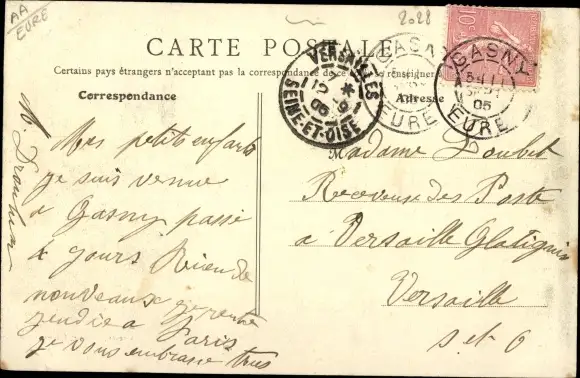 AA
EURE
2028
CARTE POSTALE
Certains pays étrangers n'acceptent pas la correspondance de ce
Correspondance
Adresse
VERSAILLES
SEINE-ET-OISE
GASNY
EURE
GASNY
05
EURE
10
Mes petits enfants
je suis venue
a Gasny passé
4 jours Rien de
nouveaux je
jendie a Paris
je vous embrasse tous
Madame Loubet
Receveuse des Poste
a Versaille Glatignie
Versaille
S et O